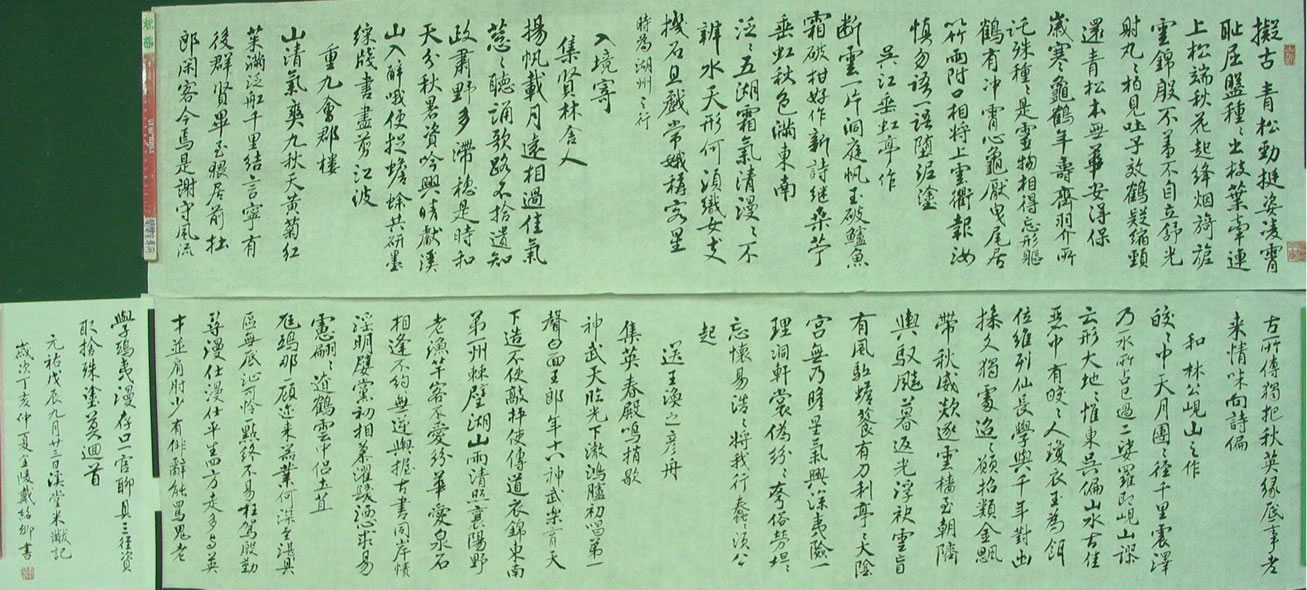 擬古 青松勁挺姿凌霄
恥屈盤種々出枝葉牽連
上松端秋花起絳烟旖旎
雲錦殷不羞不自立舒光
射丸々柏見吐子效鶴疑縮頸
還青松本無華安得保
歲寒龜鶴年壽齊羽介所
託殊種々是靈物相得忘形軀
鶴有冲霄心龜厭曳尾居
以竹兩附口相將上雲衢報汝
慎勿語一語墮泥塗
吳江垂虹亭作
断雲一片洞庭帆玉破鱸魚
霜破柑好作新詩継桑苧
垂虹秋色滿東南
泛々五湖霜氣清漫々不
辨水天形何須織女支
機石且戲常娥稱客星
時為湖州之行
入境寄
集賢林舍人
揚帆載月遠相過佳氣
蔥々聽誦歌路不拾遺知
政肅野多滯穗是時和
天分秋暑資吟興晴獻溪
山入醉哦便捉蟾蜍共研墨
綵牋書盡剪江波
重九會郡樓
山清氣爽九秋天黃菊紅
茱滿泛船千里結言寧有
後群賢畢至猥居前杜
郎閑客今焉是謝守風流
古所傳獨把秋英緣底事老
來情味向詩偏
和林公峴山之作
皎々中天月團々徑千里震澤
乃一水所占已過二娑羅即峴山謬
云形大地々惟東吳偏山水古佳
麗中有皎々人瓊衣玉為餌
位維列仙長學與千年對幽
操久獨處迢々願招類金颸
帶秋威欻逐雲檣至朝隮
輿馭飈暮返光浮袂雲盲
有風驅蟾餮有刀利亭々太陰
宮無乃瞻星氣興深夷險一
理洞軒裳偽紛々夸俗勞坦々
忘懷易浩々將我行蠢々須公
起
送王渙之彥舟
集英春殿鳴捎歇
神武天臨光下澈鴻臚初唱第一
聲白面王郎年十八神武樂育天
下造不使敲抨使傳道衣錦東南
第一州棘璧湖山兩清照襄陽野
老漁竿客不愛紛華愛泉石
相逢不約無逆與握古書同岸幘
淫朋嬖黨初相慕濯髮灑心求易
慮翩々遼鶴雲中侶土苴
尫鴟那一顧邇來器業何深至湛具
區無底沚可憐一點終不易枉駕殷勤
尋漫仕漫仕平生四方走多與英
才並肩肘少有俳辭能罵鬼老
學鴟夷漫存口一官聊具三徑資
取捨殊塗莫迴首
元祐戊辰九月廿三日溪堂米黻記
歲次丁亥仲夏